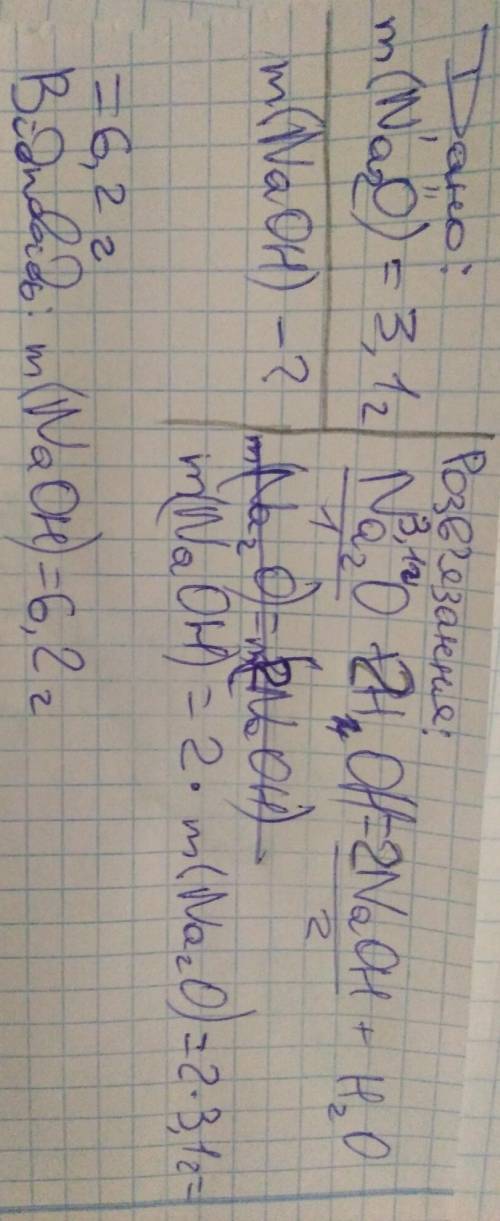 Дано:
m(Na₂O) = 3,1г
m(NaOH) - ?
Розв'язання:
3,1г
Na₂O + 2H₂OH = 2NaOH + H₂O
1 2
m(Na₂O) = m(2NaOH)
m(NaOH) = 2 · m(Na₂O) = 2·3,1г =
= 6,2г
Відповідь: m(NaOH) = 6,2г